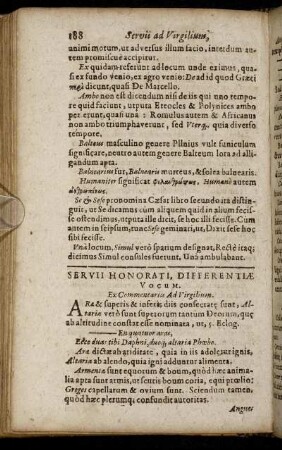 188 Servii ad Virgilium,
animi motum, ut adversus illum facio, interdum autem
tem promiscuè accipitur.
Ex quidam referunt ad locum unde eximus, quasi
si ex fundo venio, ex agro venio: De ad id quod Græci
περὶ dicunt, quasi De Marcello.
Ambo non est dicendum nisi de iis qui uno tempore
quid faciunt, utputa Eteocles & Polynices ambo
perierunt, quasi una: Romulus autem & Africanus
non ambo triumphaverunt, sed Uterq;, quia diverso
tempore.
Balteus masculino genere Plinius vult funiculum
significare, neutro autem genere Balteum lora ad alligandum
apta.
Balnearius fur, Balnearis mutens, & solea balnearis.
Humaniter significat φιλανθρώπως, Humanè autem
ἀνθρωπίνως.
Se & Sese pronomina Cæsar libro secundo ita distinguit,
ut Se dicamus cum aliquem quid in alium fecisse
ostendimus, utputa ille dicit, se hoc illi fecisse. Cum
autem in seipsum, tunc Sese geminari, ut, Dixit sese hoc
sibi fecisse.
Vnà locum, Simul verò spatium designat, Rectè itaq;
dicimus Simul cœnasse fuerunt. Unà ambulabant.
SERVII HONORATI, DIFFERENTIÆ
VOCUM.
Ex Commentariis Ad Virgilium.
ARæ & superis & inferis diis consecratæ sunt, Altaria
verò sunt superorum tantùm Deorum, quæ
ab altitudine constat esse nominata, ut, 5. Eclog.
En quatuor aras,
Ecce duas tibi Daphni, duoq; altaria Phœbo.
Aræ dictæ ab ariditate, quia in iis adolescat ignis,
Altaria ab alendo, quia igni adduntur alimenta.
Armenta sunt equorum & boum, quòd hæc animalia
apta sunt armis, ut scutis boum coria, equi prœlio:
Greges capellarum & ovium sunt. Sciendum tamen,
quòd hæc plerumq; confundit auctoritas.
Angues